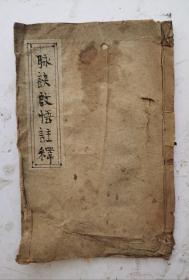 脉诀啟悟註釋